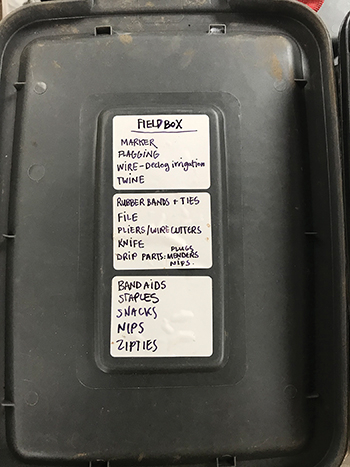 FIELD BOX
MARKER
FLAGGING
WIRE - Declog irrigation
TWINE
RUBBER BANDS + TIES
FILE
PLIERS/WIRE CUTTERS
KNIFE
DRIP PARTS: PLUGS
MENDERS
NIPS.
BANDAIDS
STAPLES
SNACKS
NIPS
ZIPTIES